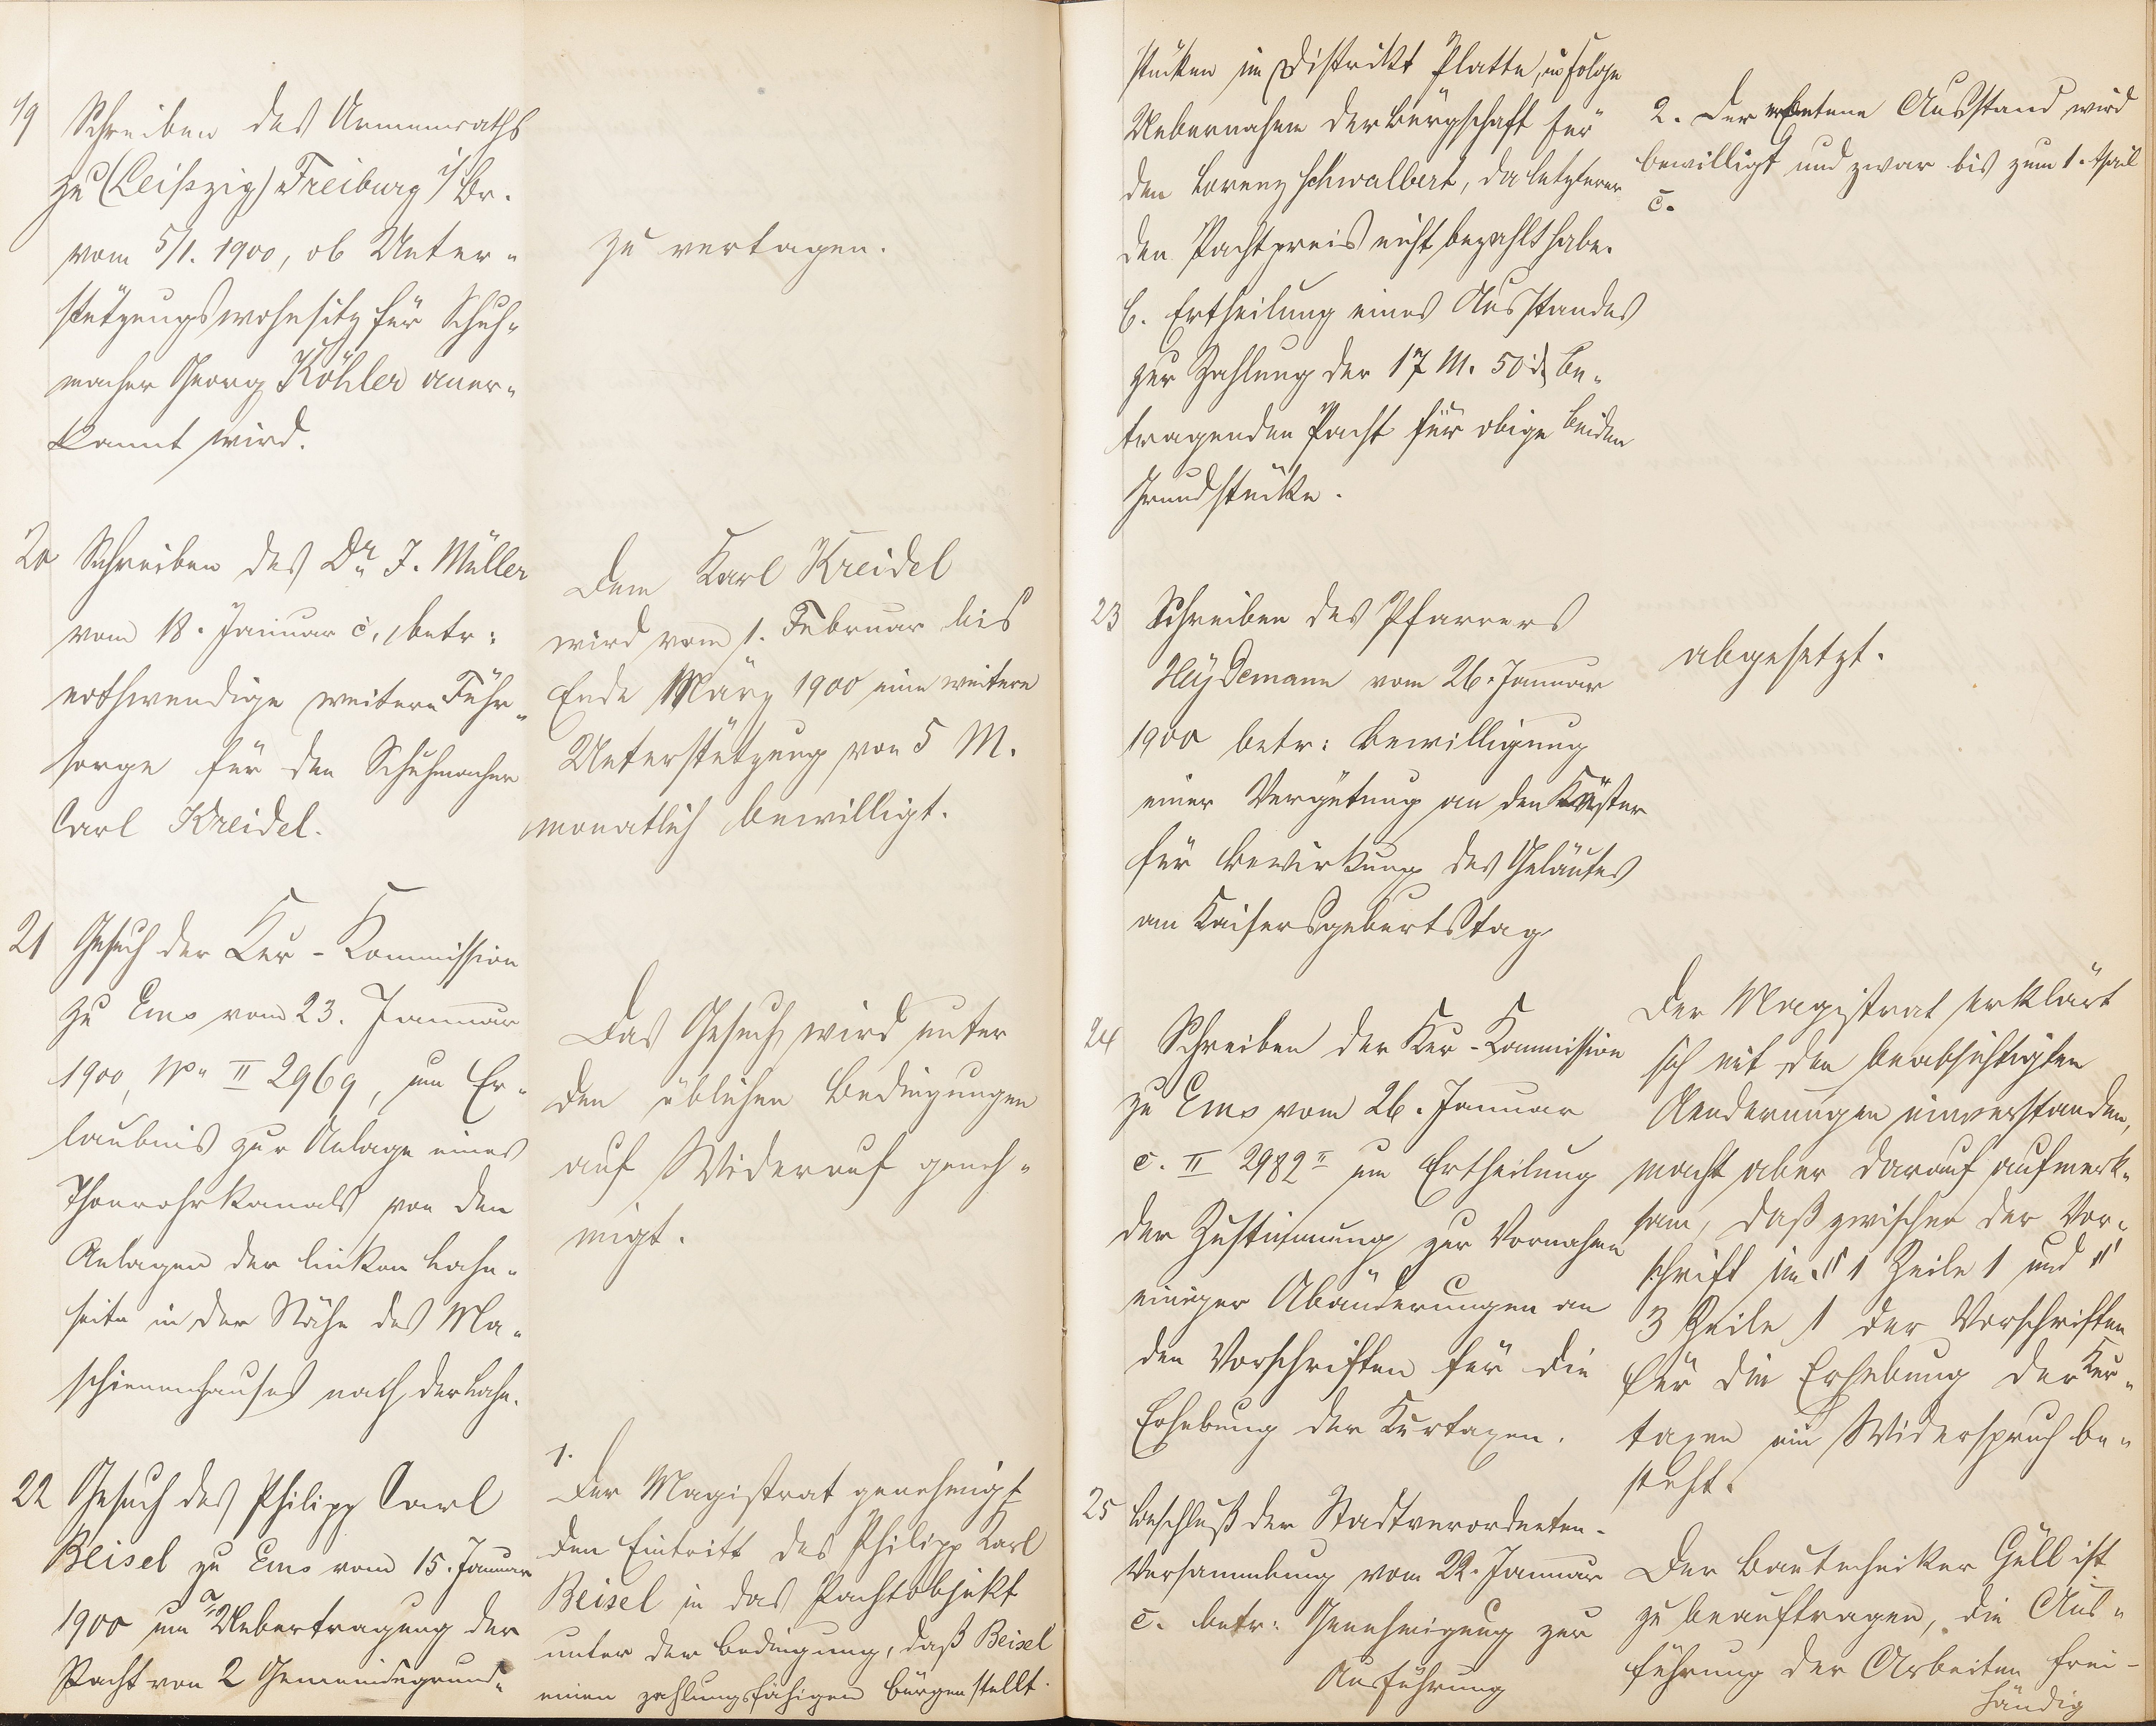 19 Schreiben des Armenraths
zu (Leipzig) Freiburg i/Br.
vom 5/1. 1900, ob Unter-
stützungswohnsitz für Schuh-
macher Georg Köhler aner-
kannt wird.
zu vertagen.
20 Schreiben des Dr. J. Müller
vom 18. Januar c., betr:
nothwendige weitere Führ-
sorge für den Schuhmacher
Carl Kreidel.
Dem Karl Kreidel
wird vom 1. Februar bis
Ende März 1900 eine weitere
Unterstützung von 5 M.
monatlich bewilligt.
21 Gesuch der Kur-Kommission
zu Ems vom 23. Januar
1900, No. II 2969, um Er-
laubnis zur Anlage eines
Thonrohrkanals von den
Anlagen der linken Lahn-
seite in der Nähe des Ma-
schienenhauses nach der Lahn.
Das Gesuch wird unter
den üblichen Bedingungen
auf Widerruf geneh-
migt.
22 Gesuch des Philipp Carl
Beisel zu Ems vom 15. Januar
1900 um a. Uebertragung der
Pacht von 2 Gemeindegrund-
1.
Der Magistrat genehmigt
den Eintritt des Philipp Karl
Beisel in das Pachtobjekt
unter der Bedingung, daß Beisel
einen zahlungsfähigen Bürgen stellt.
stücken im Distrikt Platte, in Folge
Uebernahme der Bürgschaft für
den Lorenz Schwalbert, da letzterer
den Pachtpreis nicht bezahlt habe.
b. Ertheilung eines Ausstandes
zur Zahlung der 17 M. 50 d be-
tragenden Pacht für obige beiden
Grundstücke.
2. Der erbetene Ausstand wird
bewilligt und zwar bis zum 1. April
c.
23 Schreiben des Pfarrers
Heydemann vom 26. Januar
1900 betr: Bewilligung
einer Vergütung an den Küster
für Bewirkung des Geläutes
am Kaisersgeburtstag
abgesetzt.
24 Schreiben der Kur-Kommission
zu Ems vom 26. Januar
c. II 2982 II um Ertheilung
der Zustimmung zur Vornahme
einiger Abänderungen an
den Vorschriften für die
Erhebung der Kurtaxen.
Der Magistrat erklärt
sich mit den beabsichtigten
Aenderungen einverstanden,
macht aber darauf aufmerk-
sam, daß zwischen der Vor-
schrift im § 1 Zeile 1 und §
3 Zeile 1 der Vorschriften
für die Erhebung der Kur-
taxen ein Widerspruch be-
steht.
25 Beschluß der Stadtverordneten-
Versammlung vom 22. Januar
c. betr: Genehmigung zur
Ausführung
Der Bautechniker Güll ist
zu beauftragen, die Aus-
führung der Arbeiten frei-
händig